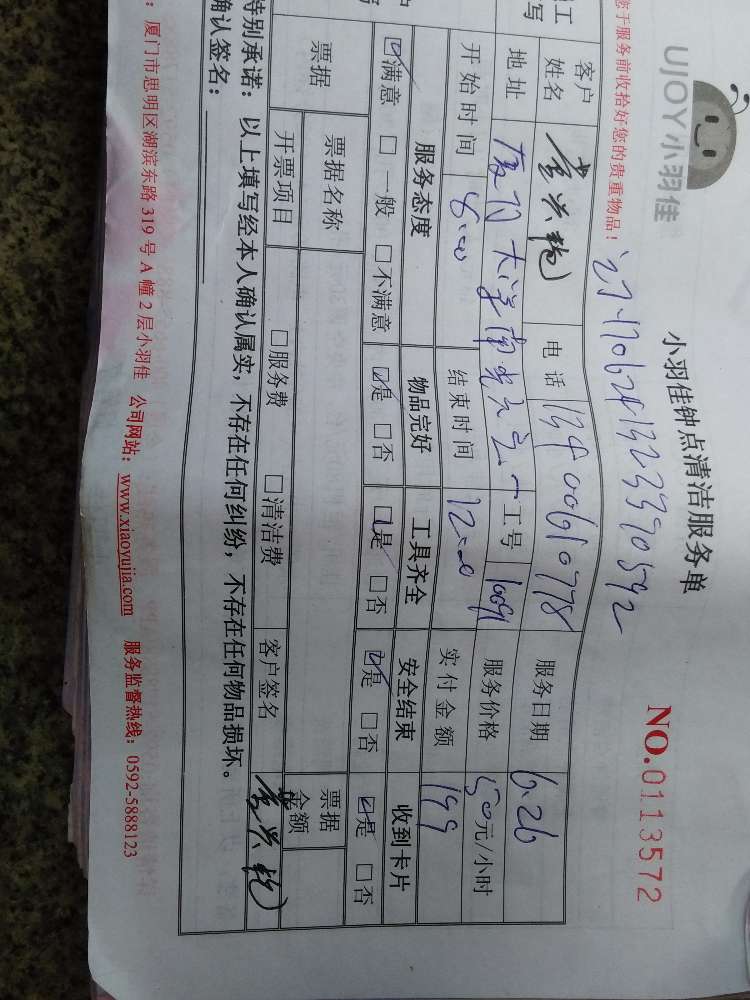 UJOY小羽佳
小羽佳钟点清洁服务单
NO.0113572
您于服务前收拾好您的贵重物品!
客户姓名 电话 13400610778 服务日期 6.26
地址 厦门大学南光 工号 1009 服务价格 50元/小时
开始时间 8:00 结束时间 12:00 实付金额 199
服务态度 物品完好 工具齐全 安全结束 收到卡片
☑满意 □一般 □不满意 ☑是 □否 ☑是 □否 ☑是 □否 ☑是 □否
票据 票据名称 票据金额
开票项目 □服务费 □清洁费 客户签名
特别承诺:以上填写经本人确认属实,不存在任何纠纷,不存在任何物品损坏。
确认签名:
:厦门市思明区湖滨东路319号A幢2层小羽佳 公司网站:www.xiaoyujia.com 服务监督热线:0592-5888123